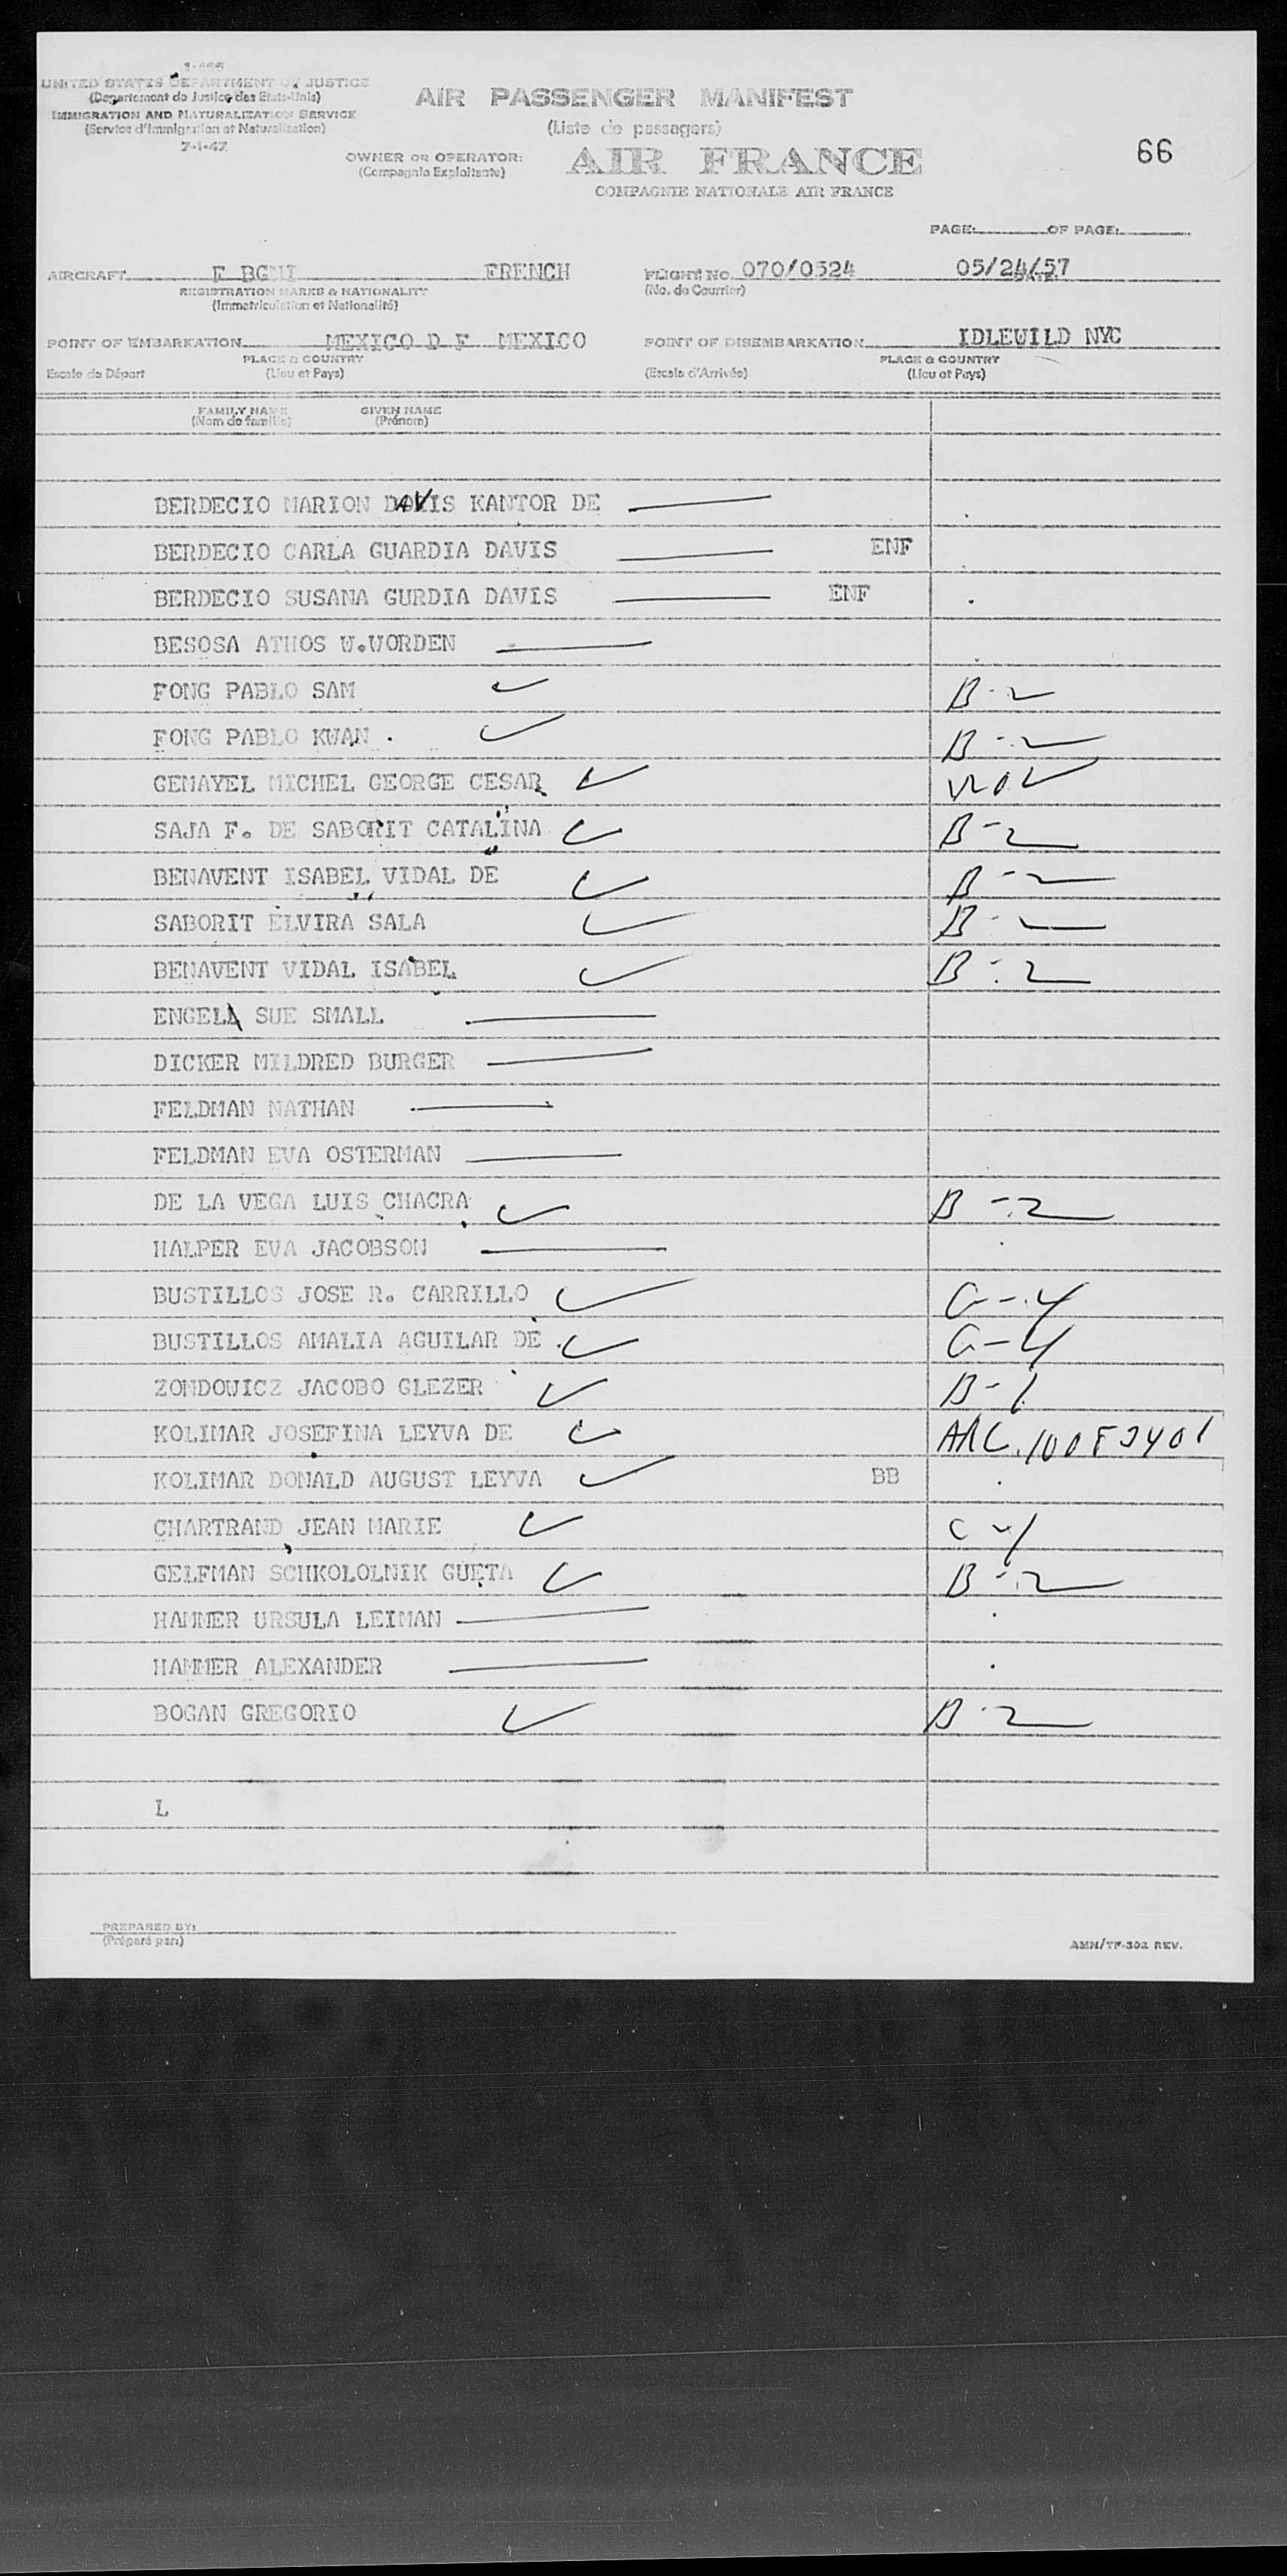 UNITED STATES DEPARTMENT OF JUSTICE
(Departement de Justice des Etats-Unis)
IMMIGRATION AND NATURALIZATION SERVICE
(Service d'Immigration et Naturalisation)
7-1-47
AIR PASSENGER MANIFEST
(Liste de passagers)
OWNER OR OPERATOR: AIR FRANCE
(Compagnie Exploitante)
COMPAGNIE NATIONALE AIR FRANCE
66
PAGE: OF PAGE:
AIRCRAFT F BGNI FRENCH FLIGHT No. 070/0524 05/24/57
REGISTRATION MARKS & NATIONALITY (No. de Courrier) DATE
(Immatriculation et Nationalité)
POINT OF EMBARKATION MEXICO D F MEXICO POINT OF DISEMBARKATION IDLEWILD NYC
PLACE & COUNTRY PLACE & COUNTRY
Escale de Départ (Lieu et Pays) (Escale d'Arrivée) (Lieu et Pays)
FAMILY NAME GIVEN NAME
(Nom de famille) (Prénom)
BERDECIO MARION DAVIS KANTOR DE
BERDECIO CARLA GUARDIA DAVIS ENF
BERDECIO SUSANA GURDIA DAVIS ENF
BESOSA ATHOS W.WORDEN
FONG PABLO SAM B-2
FONG PABLO KWAN B-2
GEMAYEL MICHEL GEORGE CESAR
SAJA F. DE SABORIT CATALINA B-2
BENAVENT ISABEL VIDAL DE B-2
SABORIT ELVIRA SALA B-2
BENAVENT VIDAL ISABEL B-2
ENGEL SUE SMALL
DICKER MILDRED BURGER
FELDMAN NATHAN
FELDMAN EVA OSTERMAN
DE LA VEGA LUIS CHACRA B-2
HALPER EVA JACOBSON
BUSTILLOS JOSE R. CARRILLO G-4
BUSTILLOS AMALIA AGUILAR DE G-4
ZONDOWICZ JACOBO GLEZER B-1
KOLIMAR JOSEFINA LEYVA DE ARC
KOLIMAR DONALD AUGUST LEYVA BB
CHARTRAND JEAN MARIE
GELFMAN SCHKOLOLNIK GUETA B-2
HAMMER URSULA LEIMAN
HAMMER ALEXANDER
BOGAN GREGORIO B-2
L
PREPARED BY:
(Préparé par:)
AMN/TF-302 REV.